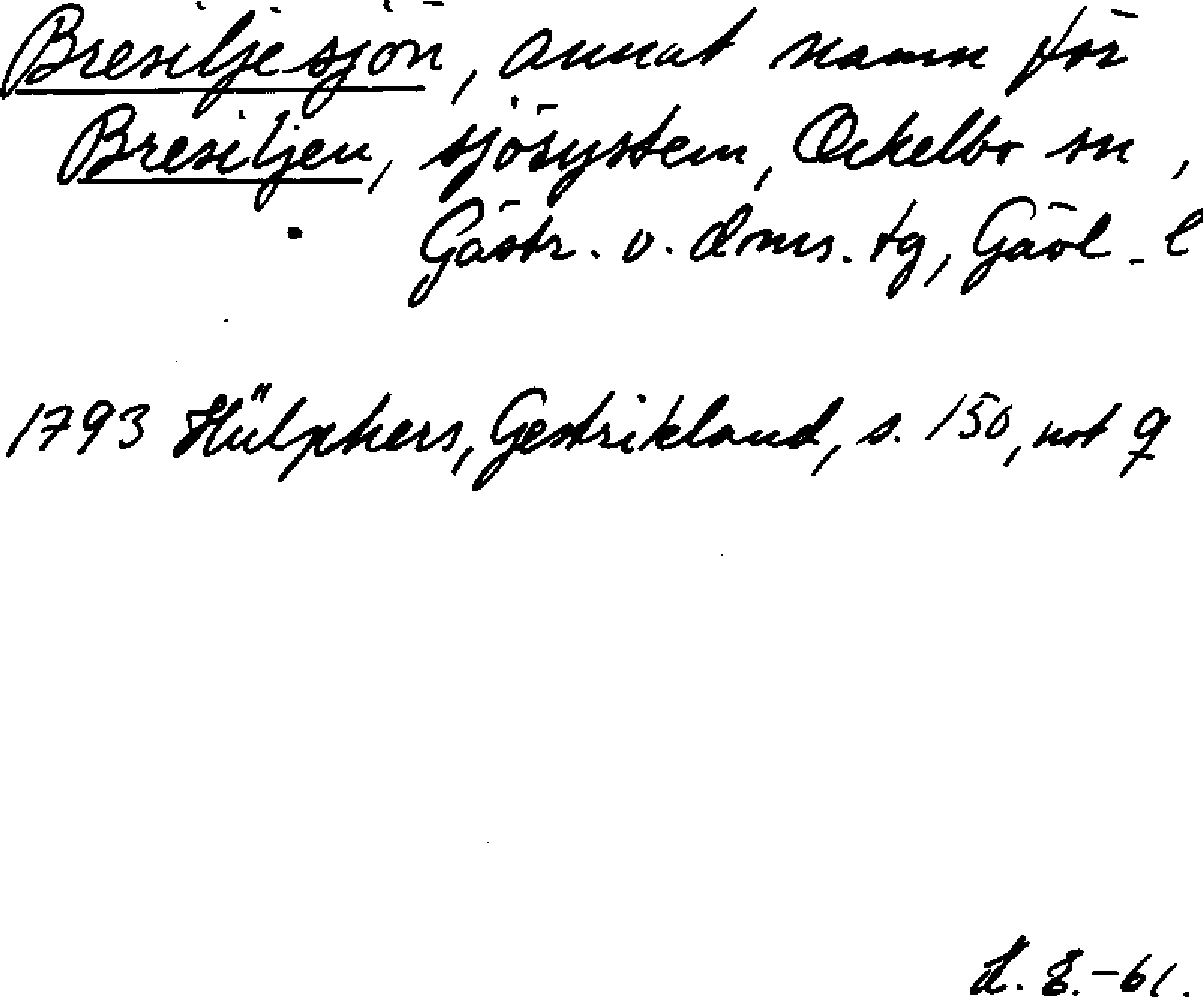 Bresiljesjön, annat namn för
Bresiljen, sjösystem, Ockelbo sn,
Gästr. v. dms. tg, Gävl. l
1793 Hülphers, Gestrikland, s. 150, not q
H. E. -61.